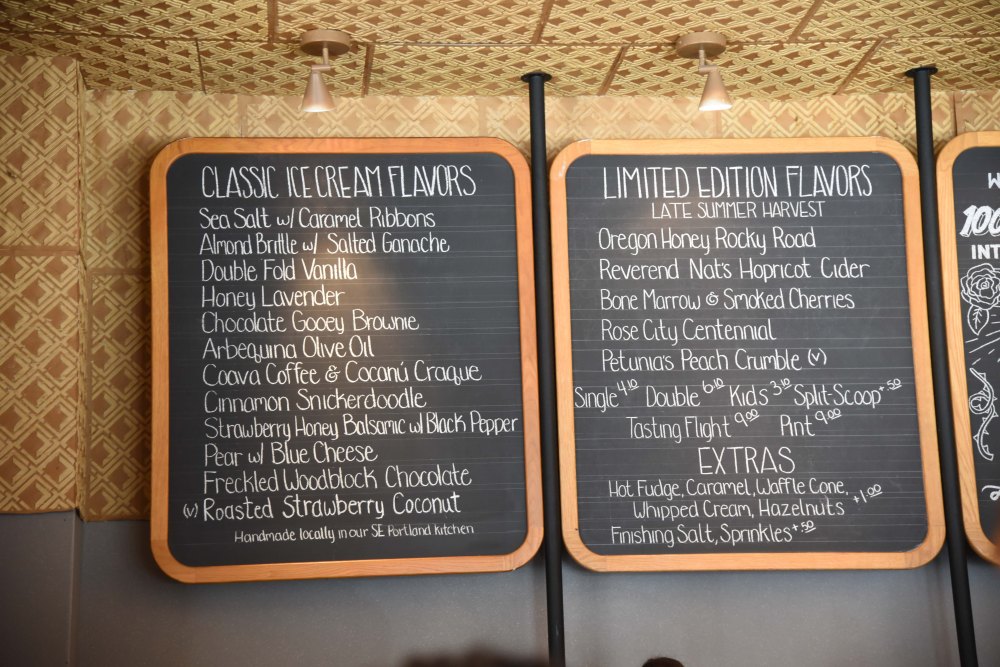 CLASSIC ICE CREAM FLAVORS
Sea Salt w/ Caramel Ribbons
Almond Brittle w/ Salted Ganache
Double Fold Vanilla
Honey Lavender
Chocolate Gooey Brownie
Arbequina Olive Oil
Coava Coffee & Cocanú Craque
Cinnamon Snickerdoodle
Strawberry Honey Balsamic w/ Black Pepper
Pear w/ Blue Cheese
Freckled Woodblock Chocolate
(v) Roasted Strawberry Coconut
Handmade locally in our SE Portland kitchen
LIMITED EDITION FLAVORS
LATE SUMMER HARVEST
Oregon Honey Rocky Road
Reverend Nat's Hopricot Cider
Bone Marrow & Smoked Cherries
Rose City Centennial
Petunia's Peach Crumble (v)
Single 4.10 Double 6.10 Kids 3.10 Split-Scoop +.50
Tasting Flight 9.00 Pint 9.00
EXTRAS
Hot Fudge, Caramel, Waffle Cone,
Whipped Cream, Hazelnuts +1.00
Finishing Salt, Sprinkles +.50
W
100
INT